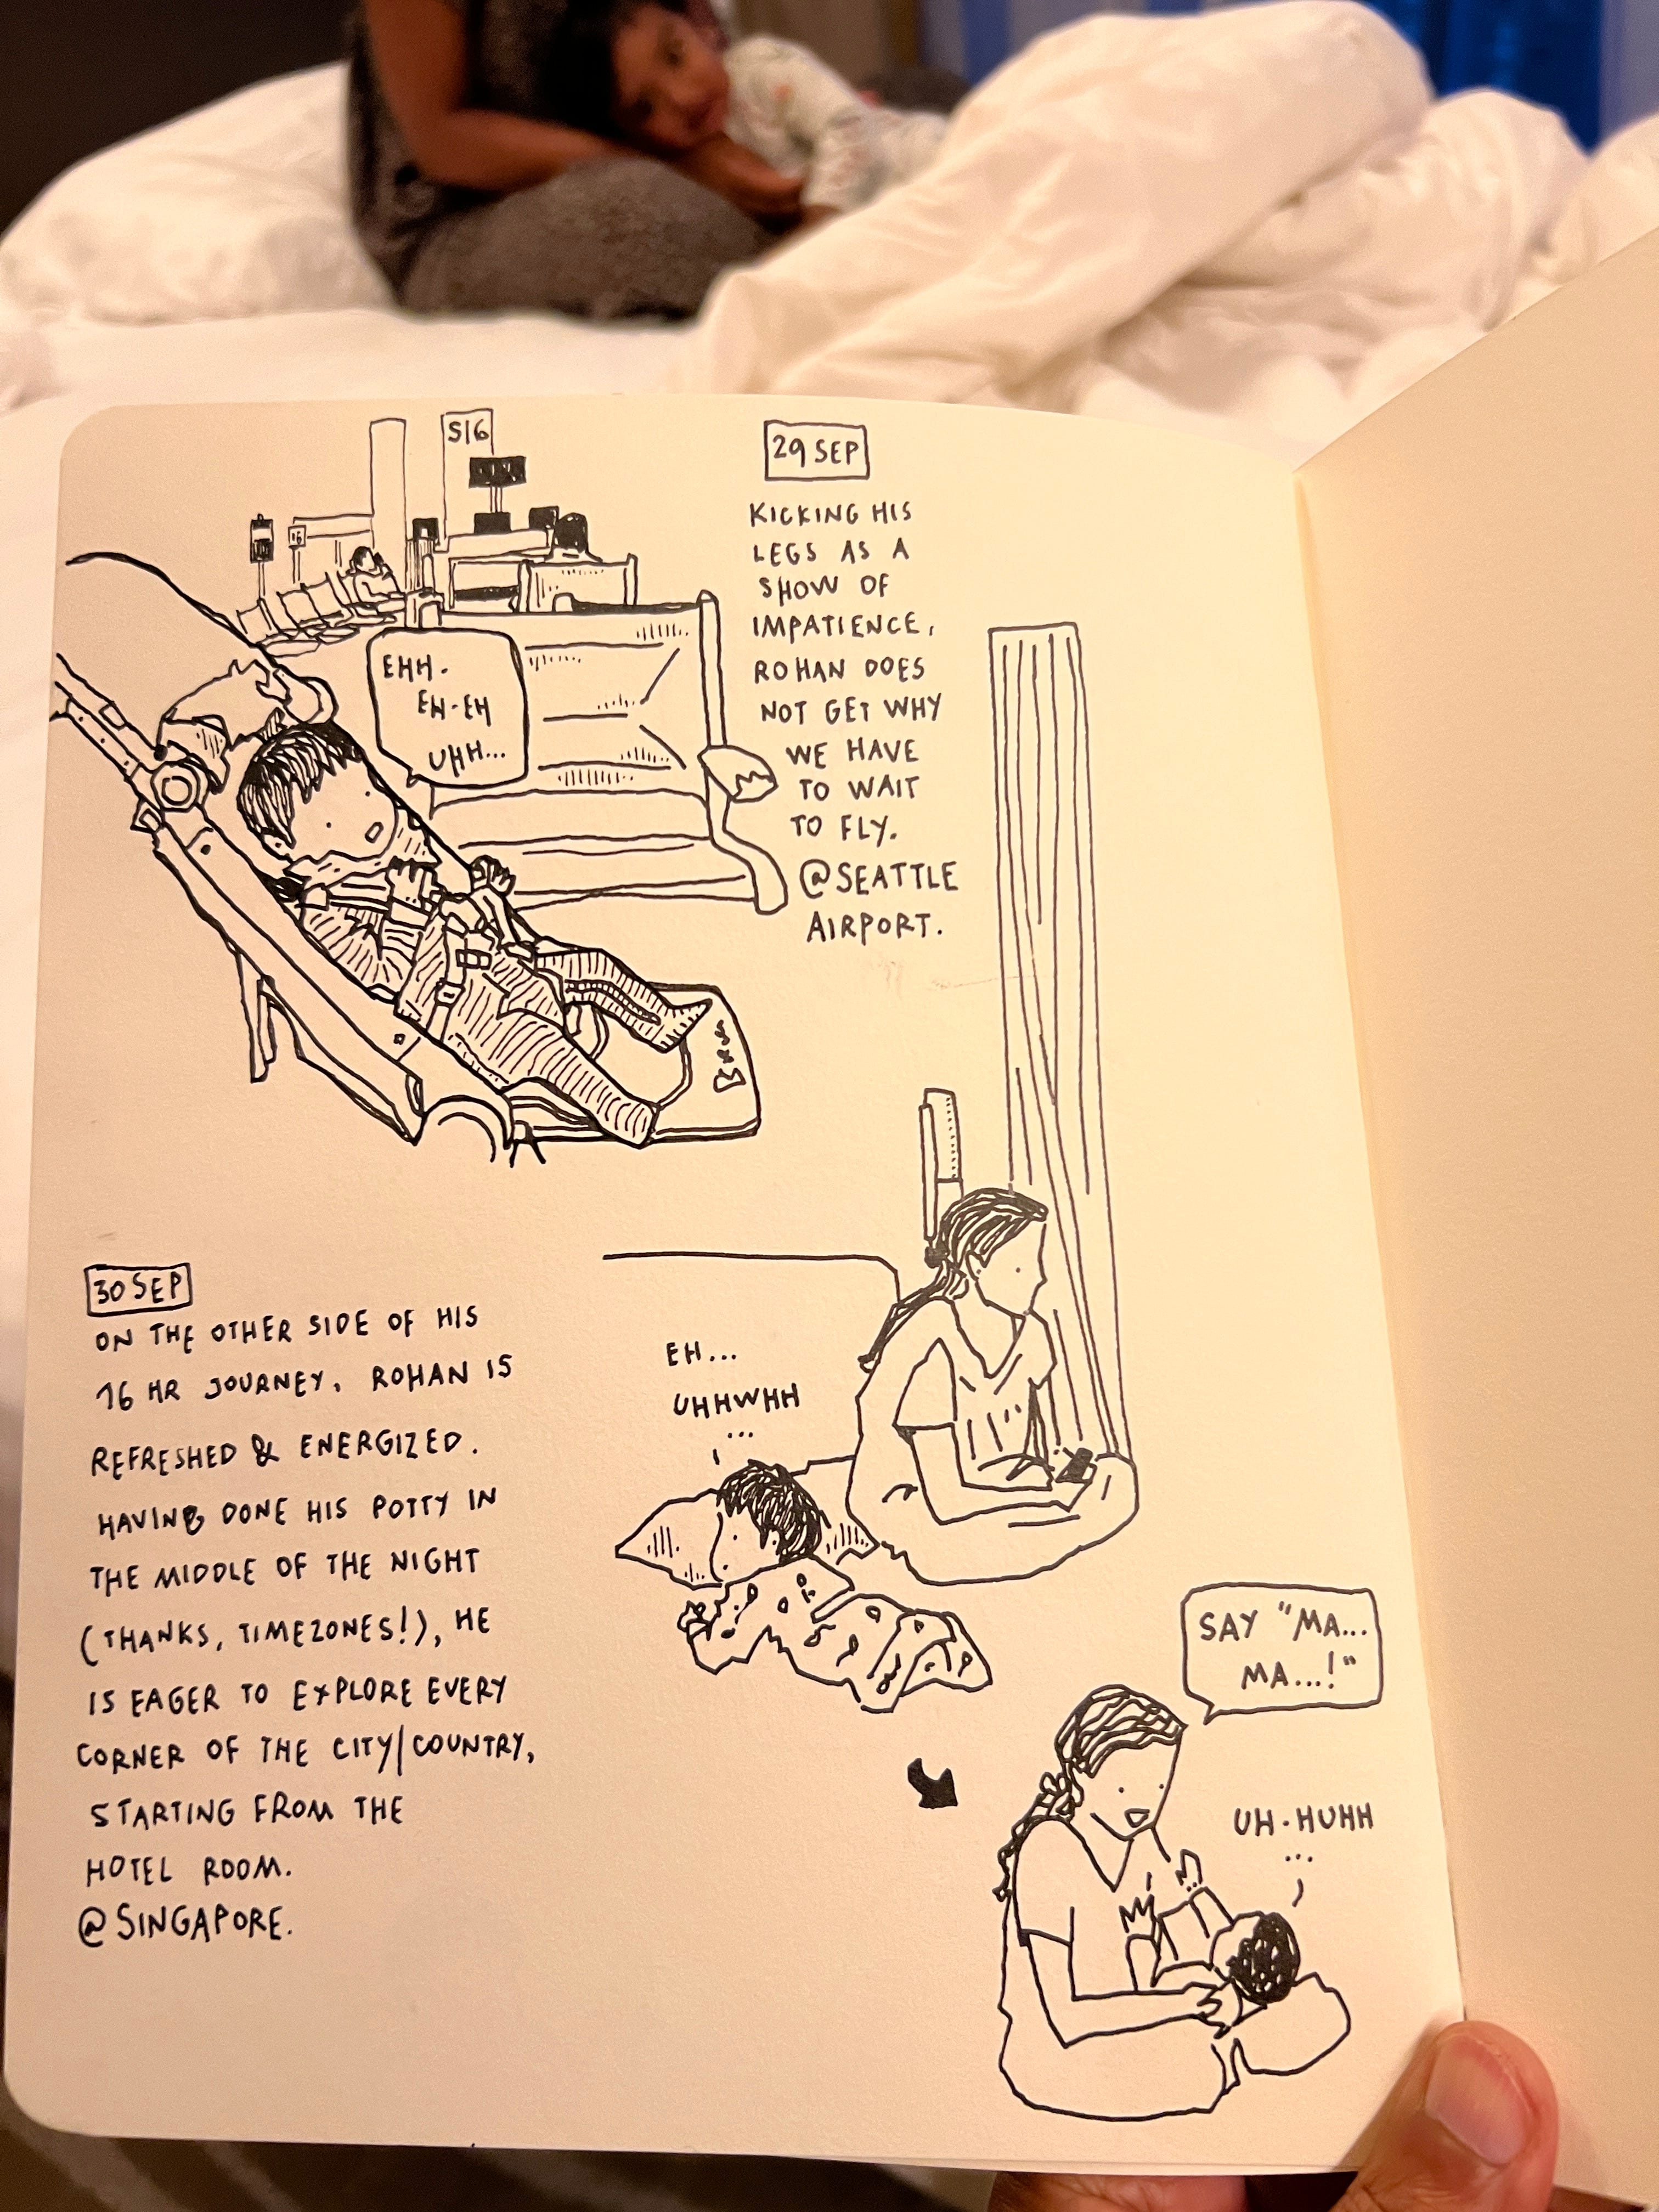 S16
29 SEP
KICKING HIS
LEGS AS A
SHOW OF
IMPATIENCE,
ROHAN DOES
NOT GET WHY
WE HAVE
TO WAIT
TO FLY.
@SEATTLE
AIRPORT.
EHH.
EH-EH
UHH...
30 SEP
ON THE OTHER SIDE OF HIS
16 HR JOURNEY, ROHAN IS
REFRESHED & ENERGIZED.
HAVING DONE HIS POTTY IN
THE MIDDLE OF THE NIGHT
(THANKS, TIMEZONES!), HE
IS EAGER TO EXPLORE EVERY
CORNER OF THE CITY/COUNTRY,
STARTING FROM THE
HOTEL ROOM.
@SINGAPORE.
EH...
UHHWHH
...
SAY "MA...
MA...!"
UH-HUHH
...